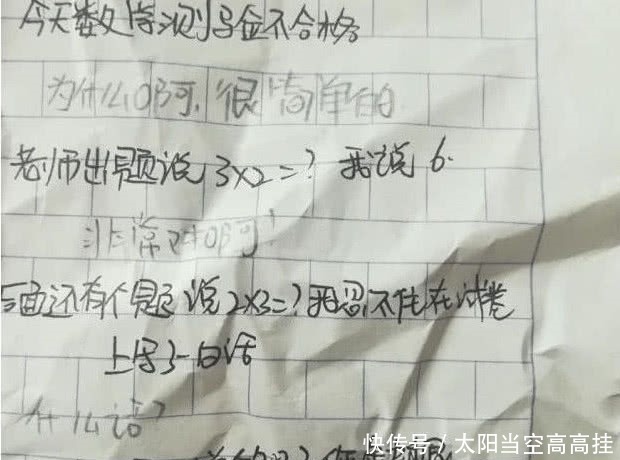 今天数学测验不合格
为什么啊,很简单的
老师出题说 3×2=? 我说 6.
非常对啊!
后面还有个题说2×3=?我忍不住在试卷
上写了一句话
什么话?
快传号 / 太阳当空高高挂